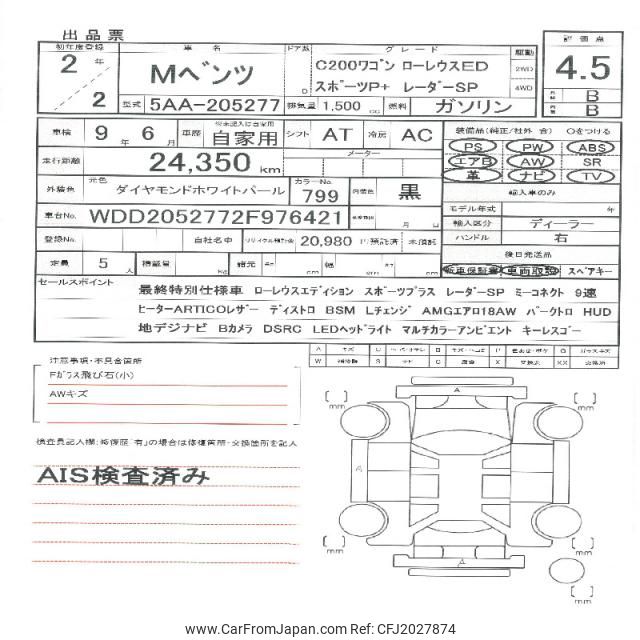 出品票
初年度登録 車名 ドア数 グレード 駆動 評価点
2年 Mベンツ D C200ワゴン ローレウスED 2WD 4.5
2 スポーツP+ レーダーSP 4WD B
型式 5AA-205277 排気量 1,500 cc 燃料 ガソリン B
車検 9年 6月 車歴 自家用 シフト AT 冷房 AC 装備品(純正/社外 含) Oをつける
PS PW ABS
走行距離 24,350 km メーター エアB AW SR
革 ナビ TV
外装色 元色 ダイヤモンドホワイトパール カラーNo. 799 内装色 黒 輸入車のみ
モデル年式 年
車台No. WDD2052772F976421 月 日 輸入区分 ディーラー
登録No. 自社名中 リサイクル預託金 20,980 円預託済 未預託 ハンドル 右
後日発送品
定員 5人 積載量 kg 諸元 長 cm 幅 cm 高 cm 新車保証書 車両取説 スペアキー
セールスポイント
最終特別仕様車 ローレウスエディション スポーツプラス レーダーSP ミーコネクト 9速
ヒーターARTICOレザー ディストロ BSM Lチェンジ AMGエアロ18AW パークトロ HUD
地デジナビ Bカメラ DSRC LEDヘッドライト マルチカラーアンビエント キーレスゴー
注意事項・不具合箇所
Fガラス飛び石(小)
AWキズ
検査員記入欄:修復歴「有」の場合は修復箇所・交換箇所を記入
AIS検査済み
A
mm
mm
A
mm
mm
A
mm
www.CarFromJapan.com Ref: CFJ2027874